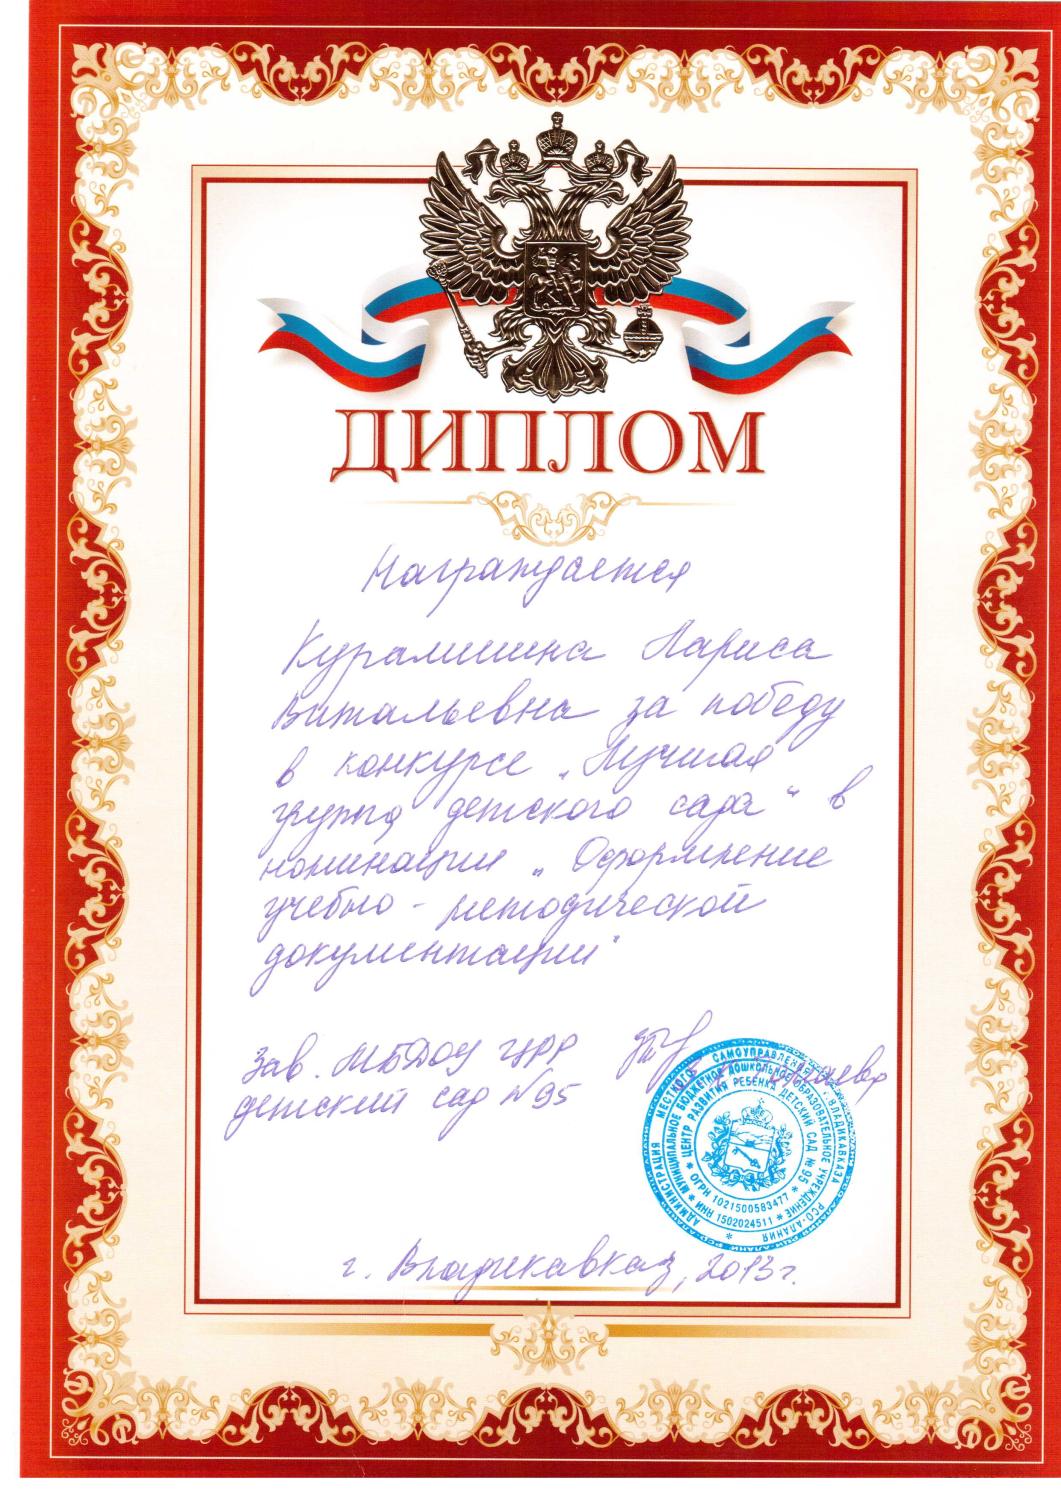 ДИПЛОМ
Награждается
Курамшина Лариса
Витальевна за победу
в конкурсе „Лучшая
группа детского сада“ в
номинации „Оформление
учебно - методической
документации“
Зав. МБДОУ ЦРР
детский сад №95
АДМИНИСТРАЦИЯ МЕСТНОГО САМОУПРАВЛЕНИЯ Г. ВЛАДИКАВКАЗА РСО-АЛАНИЯ
МУНИЦИПАЛЬНОЕ БЮДЖЕТНОЕ ДОШКОЛЬНОЕ ОБРАЗОВАТЕЛЬНОЕ УЧРЕЖДЕНИЕ
ЦЕНТР РАЗВИТИЯ РЕБЕНКА ДЕТСКИЙ САД № 95
ОГРН 1021500583477
ИНН 1502024511
г. Владикавказ, 2013г.